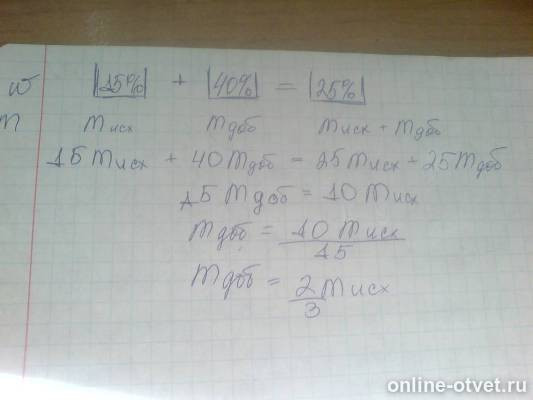 w |15%| + |40%| = |25%|
m mисх mдоб mисх + mдоб
15 mисх + 40 mдоб = 25 mисх + 25 mдоб
15 mдоб = 10 mисх
mдоб = 10 mисх / 15
mдоб = 2/3 mисх
online-otvet.ru